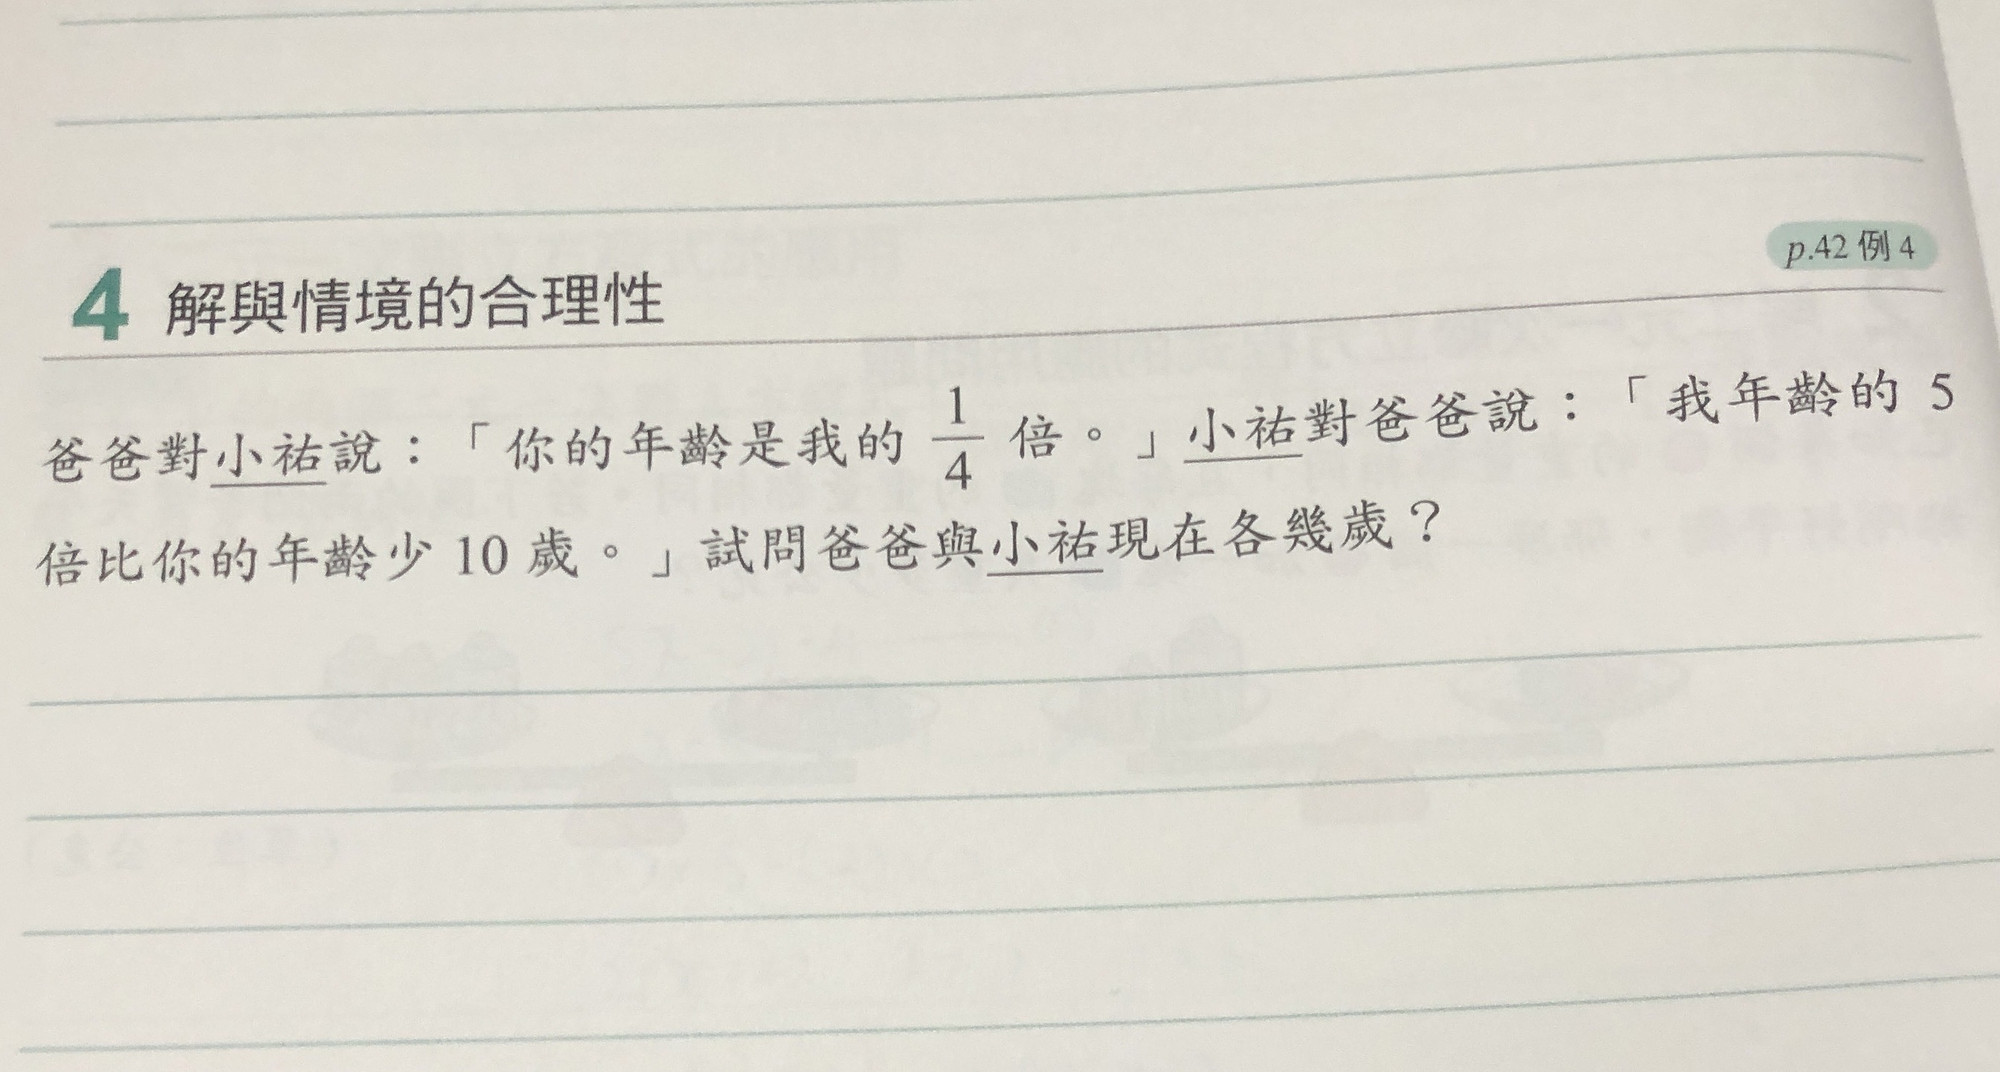 p.42 例 4
4 解與情境的合理性
爸爸對小祐說：「你的年齡是我的 1/4 倍。」小祐對爸爸說：「我年齡的 5
倍比你的年齡少 10 歲。」試問爸爸與小祐現在各幾歲？